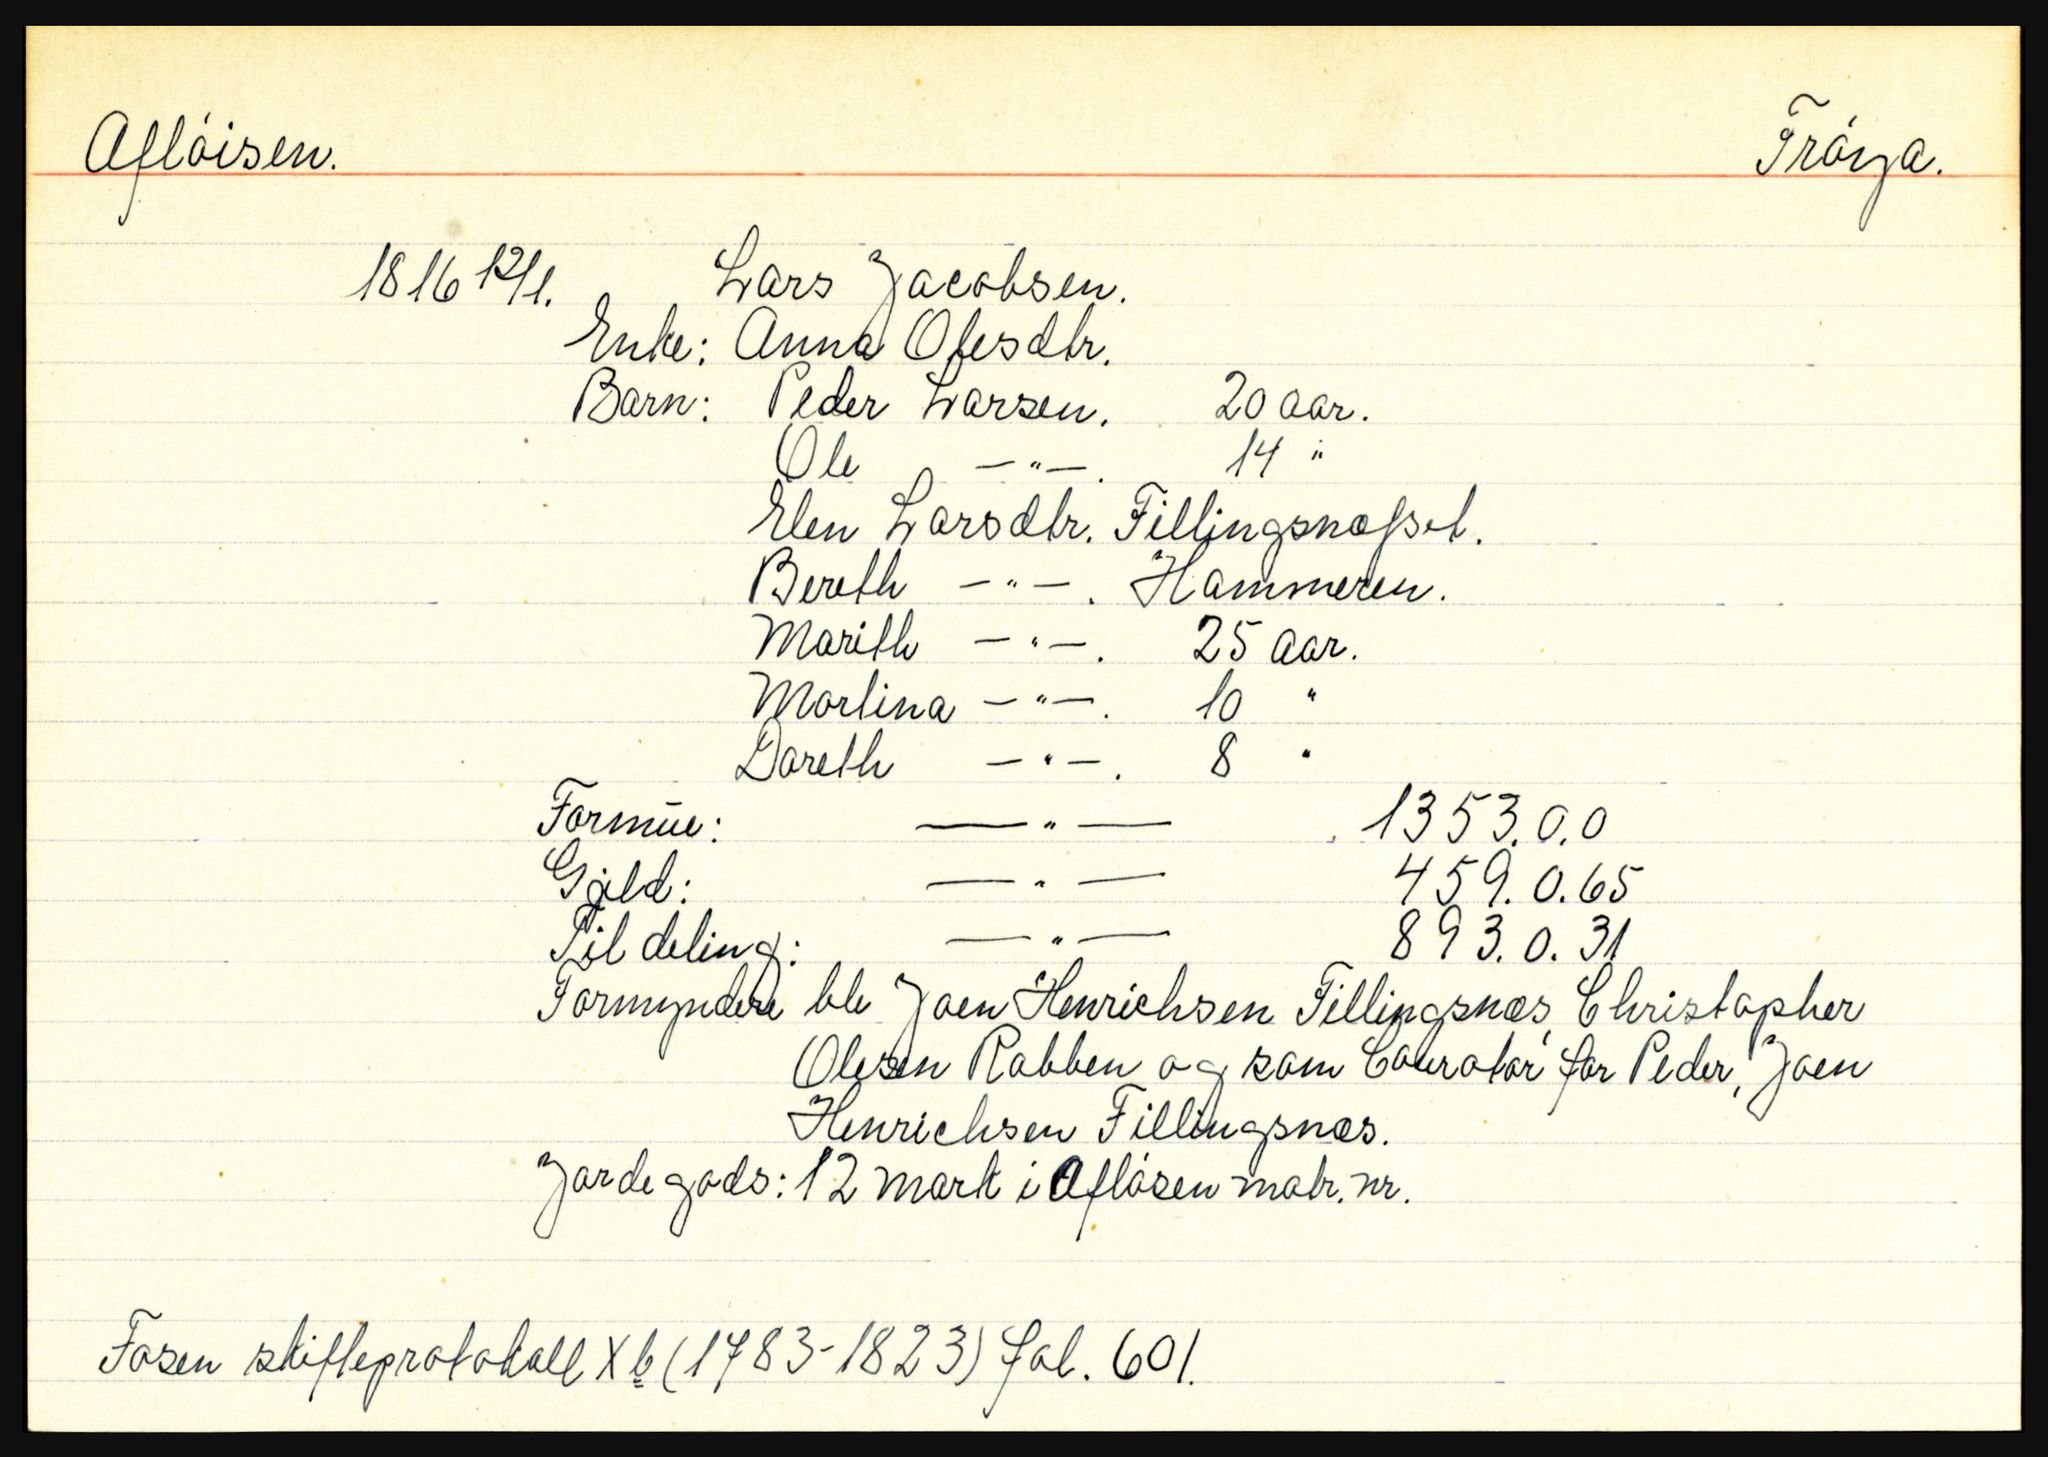 Aflöisen. Fröya.
1816 12/1. Lars Jacobsen.
Enke: Anna Olesdtr.
Barn: Peder Larsen. 20 aar.
Ole —"—. 14 "
Elen Larsdtr. Fillingsnæsset.
Bereth —"—. Hammeren.
Marith —"—. 25 aar.
Martina —"—. 10 "
Doreth —"—. 8 "
Formue: —"— 1353.0.0
Gjeld: —"— 459.0.65
Til deling: —"— 893.0.31
Formyndere ble Joen Henrichsen Fillingsnæs, Christopher
Olesen Rabben og som Courator for Peder, Joen
Henrichsen Fillingsnæs.
Jordegods: 12 mark i Aflösen matr. nr.
Fosen skifteprotokoll Xb (1783-1823) fol. 601.